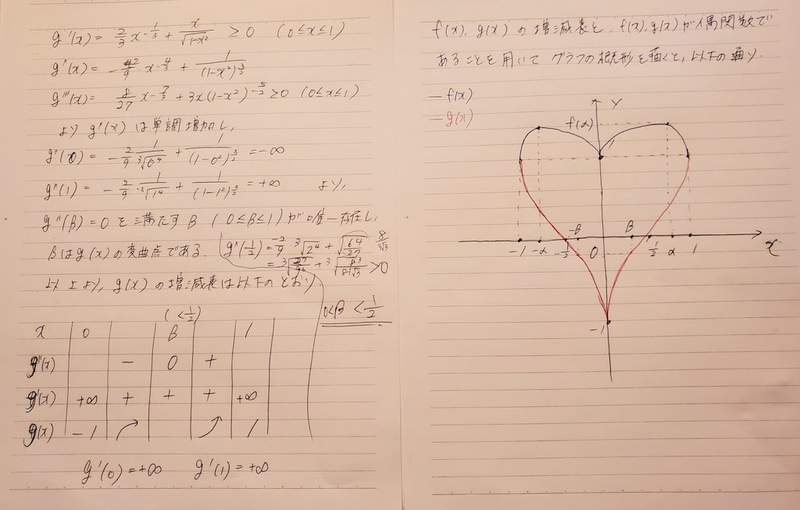 g'(x) = 2/3 x^{-1/3} + x/√(1-x²) ≥ 0 (0≤x≤1)
g''(x) = -2/9 x^{-4/3} + 1/(1-x²)^{3/2}
g'''(x) = 8/27 x^{-7/3} + 3x(1-x²)^{-5/2} ≥ 0 (0≤x≤1)
より g''(x) は単調増加し,
g''(0) = -2/9 1/³√0⁴ + 1/(1-0²)^{3/2} = -∞
g''(1) = -2/9 1/³√1⁴ + 1/(1-1²)^{3/2} = +∞ より,
g''(β)=0 を満たす β (0≤β≤1) が唯一存在し,
βは g(x) の変曲点である.
g''(1/2) = -2/9 ³√2⁴ + √64/27
>0
以上より, g(x) の増減表は以下のとおり
0<β<1/2
(<1/2)
x 0 β 1
g''(x) - 0 +
g'(x) +∞ + + + +∞
g(x) -1 ↗ ↗ 1
g'(0)=+∞ g'(1)=+∞
f(x), g(x) の増減表と, f(x), g(x) が偶関数で
あることを用いて グラフの概形を描くと, 以下の通り.
—f(x)
—g(x)
y
f(α)
1
-β β
-1 -α -1/2 0 1/2 α 1 x
-1